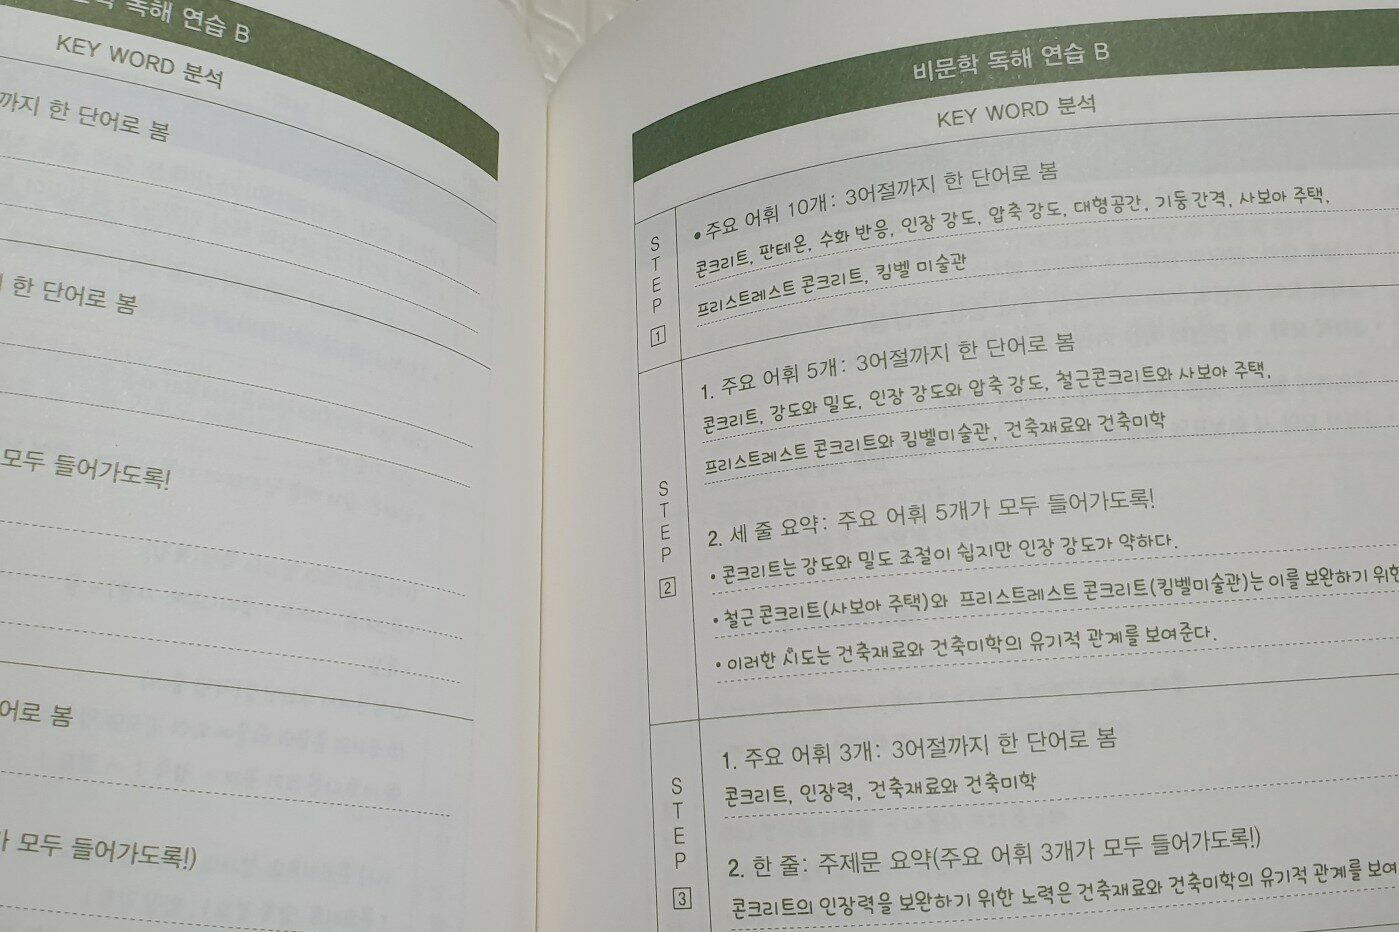 독해 연습 B
KEY WORD 분석
까지 한 단어로 봄
한 단어로 봄
모두 들어가도록!
어로 봄
모두 들어가도록!)
비문학 독해 연습 B
KEY WORD 분석
STEP 1
• 주요 어휘 10개: 3어절까지 한 단어로 봄
콘크리트, 판테온, 수화 반응, 인장 강도, 압축 강도, 대형공간, 기둥 간격, 사보아 주택,
프리스트레스트 콘크리트, 킴벨 미술관
STEP 2
1. 주요 어휘 5개: 3어절까지 한 단어로 봄
콘크리트, 강도와 밀도, 인장 강도와 압축 강도, 철근콘크리트와 사보아 주택,
프리스트레스트 콘크리트와 킴벨미술관, 건축재료와 건축미학
2. 세 줄 요약: 주요 어휘 5개가 모두 들어가도록!
• 콘크리트는 강도와 밀도 조절이 쉽지만 인장 강도가 약하다.
• 철근 콘크리트(사보아 주택)와 프리스트레스트 콘크리트(킴벨미술관)는 이를 보완하기 위한
• 이러한 시도는 건축재료와 건축미학의 유기적 관계를 보여준다.
STEP 3
1. 주요 어휘 3개: 3어절까지 한 단어로 봄
콘크리트, 인장력, 건축재료와 건축미학
2. 한 줄: 주제문 요약(주요 어휘 3개가 모두 들어가도록!)
콘크리트의 인장력을 보완하기 위한 노력은 건축재료와 건축미학의 유기적 관계를 보여